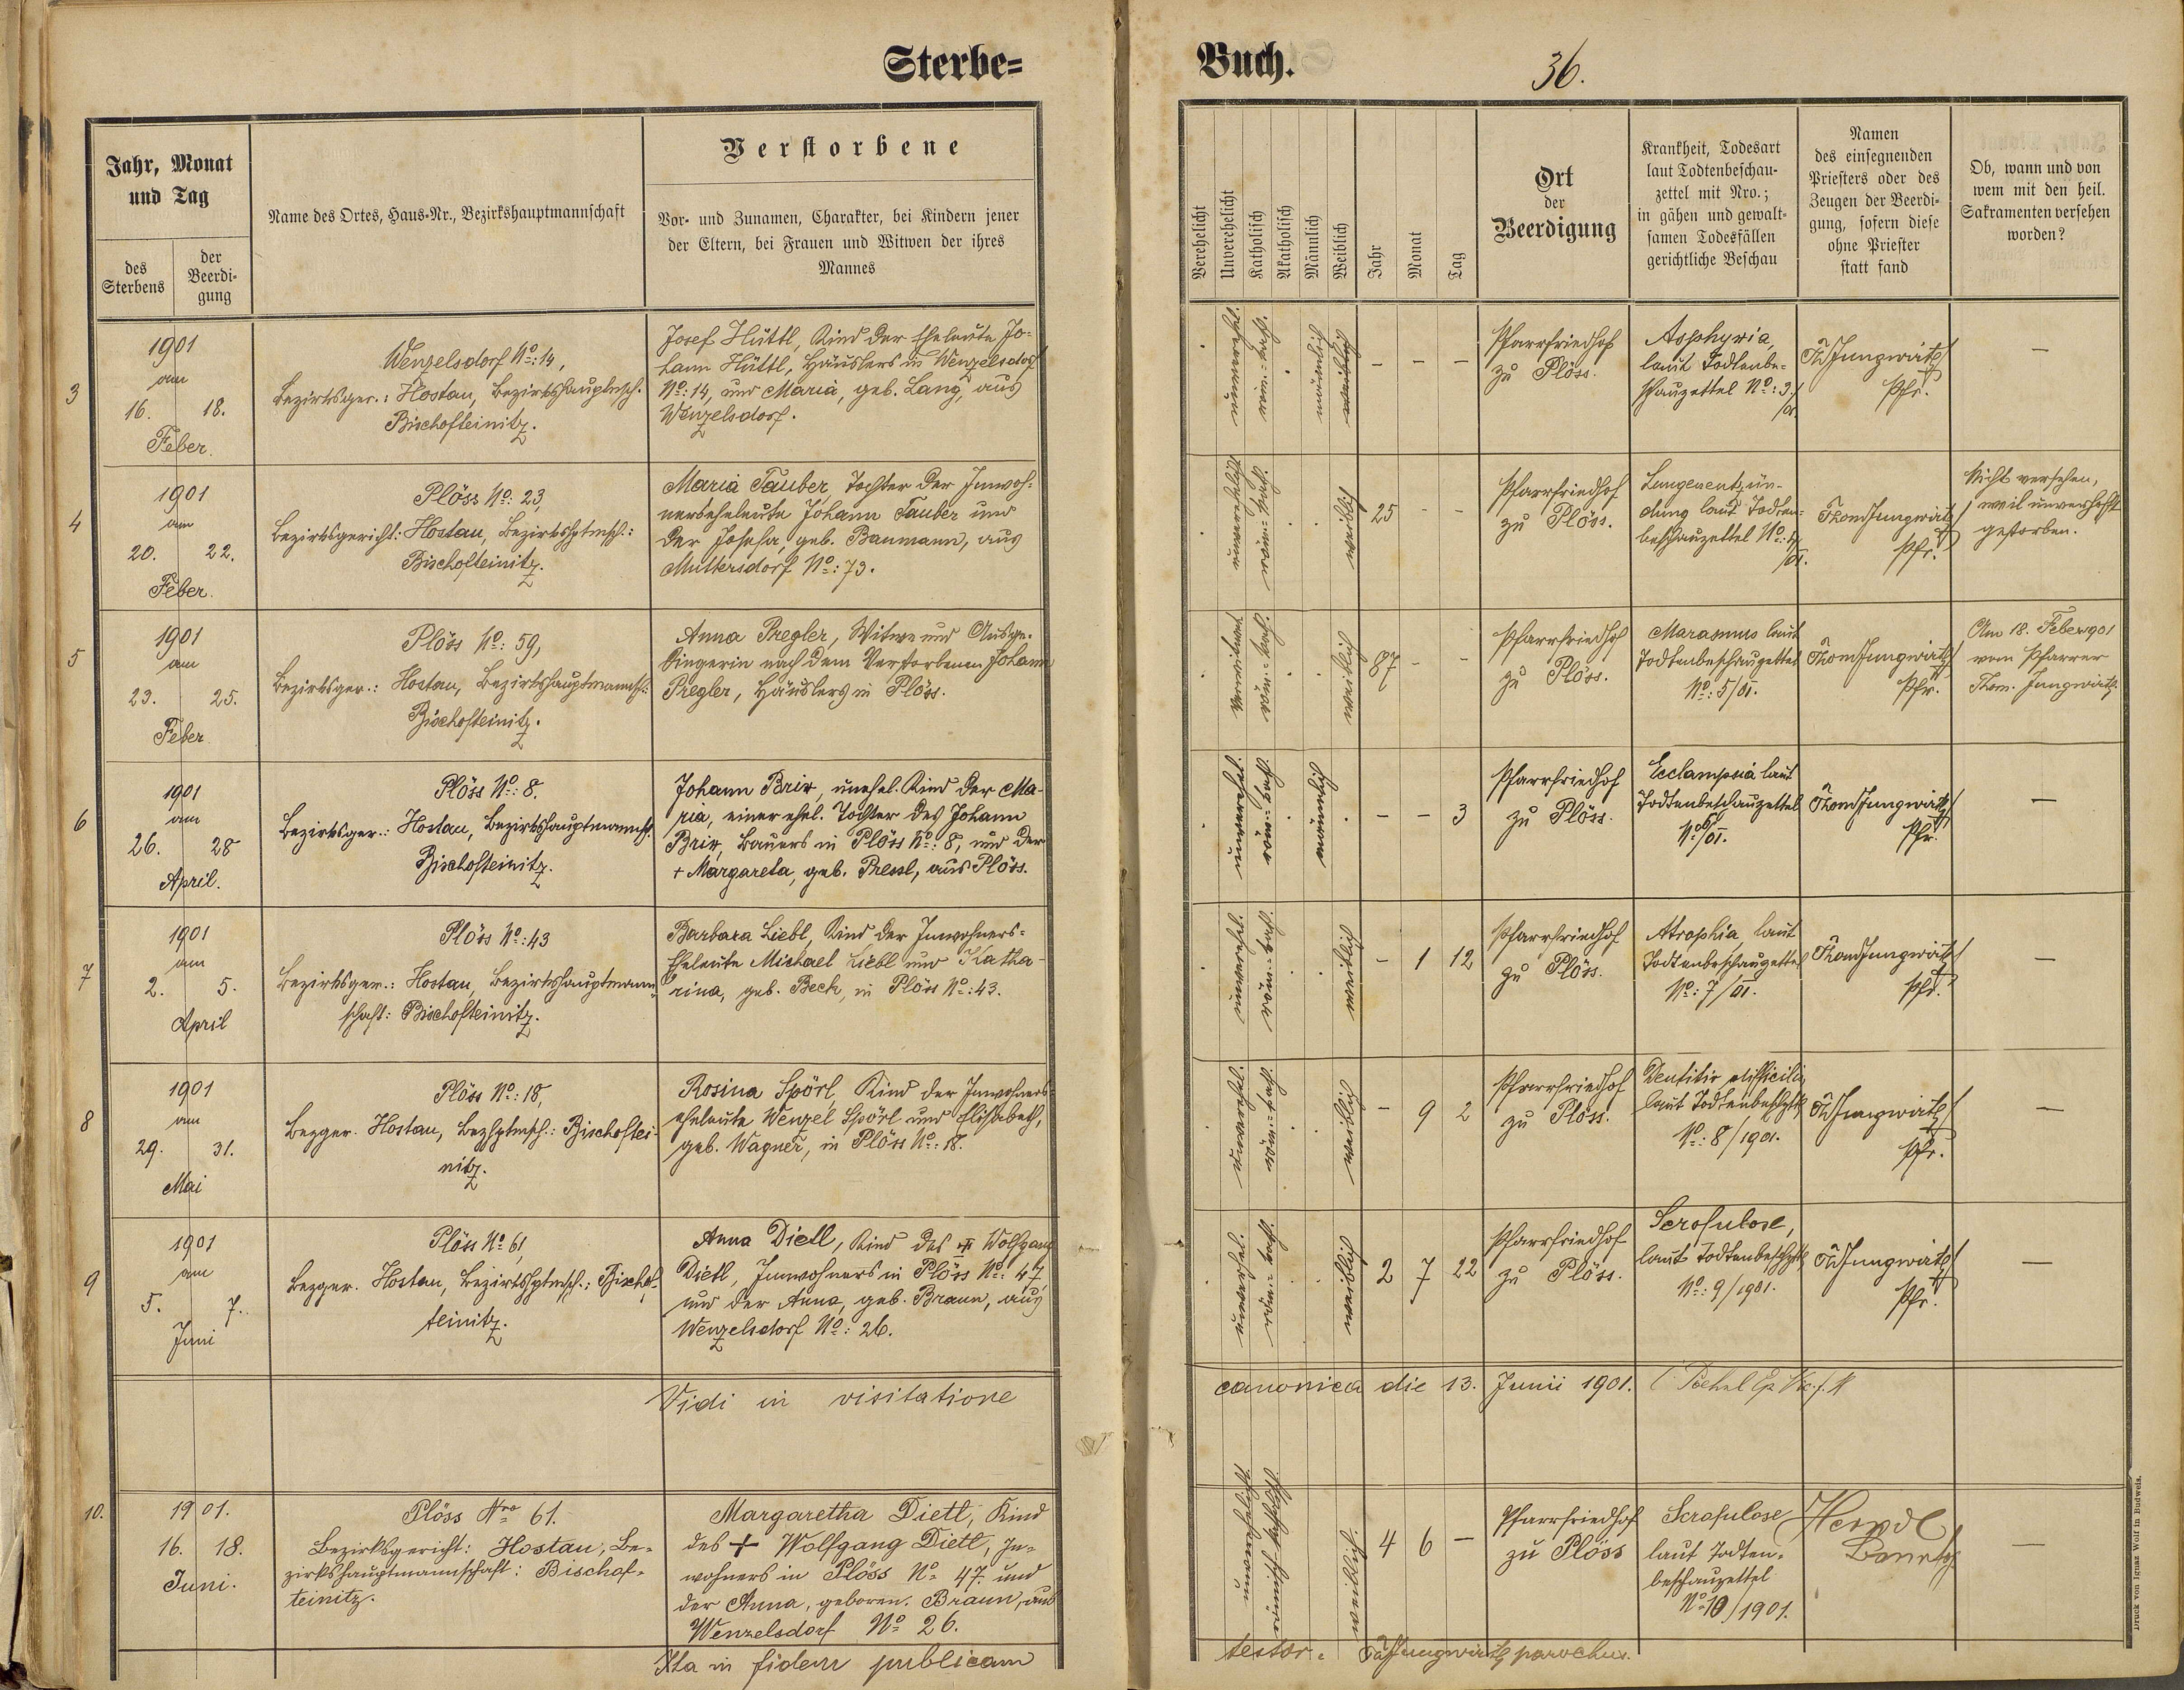 Sterbe=
Buch.
36.
Jahr, Monat
und Tag
des
Sterbens
der
Beerdi-
gung
Name des Ortes, Haus-Nr., Bezirkshauptmannschaft
Verstorbene
Vor- und Zunamen, Charakter, bei Kindern jener
der Eltern, bei Frauen und Witwen der ihres
Mannes
Verehelicht
Unverehelicht
Katholisch
Akatholisch
Männlich
Weiblich
Jahr
Monat
Tag
Ort
der
Beerdigung
Krankheit, Todesart
laut Todtenbeschau-
zettel mit Nro.;
in gähen und gewalt-
samen Todesfällen
gerichtliche Beschau
Namen
des einsegnenden
Priesters oder des
Zeugen der Beerdi-
gung, sofern diese
ohne Priester
statt fand
Ob, wann und von
wem mit den heil.
Sakramenten versehen
worden?
3
1901
am
16. 18.
Feber.
Wenzelsdorf No: 14,
Bezirksger.: Hostau, Bezirkshauptmsch.
Bischofteinitz.
Josef Hüttl, Kind der Eheleute Jo-
hann Hüttl, Häuslers in Wenzelsdorf
No: 14, und Maria, geb. Lang, aus
Wenzelsdorf.
unverehel.
röm.=kath.
männlich
weiblich
- - -
Pfarrfriedhof
zu Plöss.
Asphyxia,
laut Todtenbe-
schauzettel No: 3/
01.
Th Jungwirth
Pfr.
—
4
1901
am
20. 22.
Feber.
Plöss No: 23,
Bezirksgericht: Hostau, Bezirkshptmsch.:
Bischofteinitz.
Maria Tauber, Tochter der Inwoh-
nerseheleute Johann Tauber und
der Josefa, geb. Baumann, aus
Muttersdorf No: 73.
unverehelicht
röm.=kath.
weiblich
25 - -
Pfarrfriedhof
zu Plöss.
Lungenentzün-
dung laut Todten-
beschauzettel No: 4/
01.
Thom Jungwirth
Pfr.
Nicht versehen,
weil unverhofft
gestorben.
5
1901
am
23. 25.
Feber
Plöss No: 59,
Bezirksger.: Hostau, Bezirkshauptmannsch.:
Bischofteinitz.
Anna Pregler, Witwe und Ausge-
dingerin nach dem verstorbenen Johann
Pregler, Häuslers in Plöss.
verwitwet
röm.=kath.
weiblich
87 - -
Pfarrfriedhof
zu Plöss.
Marasmus laut
Todtenbeschauzettel
No: 5/01.
Thom Jungwirth
Pfr.
Am 18. Feber 901
vom Pfarrer
Thom. Jungwirth.
6
1901
am
26. 28
April.
Plöss No: 8.
Bezirksger.: Hostau, Bezirkshauptmannsch.
Bischofteinitz.
Johann Brix, unehel. Kind der Ma-
ria, einer ehel. Tochter des Johann
Brix, Bauers in Plöss No: 8, und der
+ Margareta, geb. Pressl, aus Plöss.
unverehel.
röm.=kath.
männlich
- - 3
Pfarrfriedhof
zu Plöss.
Ecclampsia laut
Todtenbeschauzettel
No: 6/01.
Thom Jungwirth
Pfr.
—
7
1901
am
2. 5.
April
Plöss No: 43
Bezirksger.: Hostau, Bezirkshauptmann-
schaft: Bischofteinitz.
Barbara Liebl, Kind der Inwohners-
Eheleute Michael Liebl und Katha-
rina, geb. Beck, in Plöss No: 43.
unverehel.
röm.=kath.
weiblich
- 1 12
Pfarrfriedhof
zu Plöss.
Atrophia, laut
Todtenbeschauzettel
No: 7/01.
Thom Jungwirth
Pfr.
—
8
1901
am
29. 31.
Mai
Plöss No: 18,
Bezger. Hostau, Bezhptmsch.: Bischoftei-
nitz.
Rosina Spörl, Kind der Inwohners-
eheleute Wenzel Spörl und Elisabeth,
geb. Wagner, in Plöss No: 18.
unverehel.
röm.=kath.
weiblich
- 9 2
Pfarrfriedhof
zu Plöss.
Dentitio difficilis,
laut Todtenbeschztl
No: 8/1901.
Th Jungwirth
Pfr.
—
9
1901
am
5. 7.
Juni
Plöss No 61,
Bezger. Hostau, Bezirkshptmsch.: Bischof-
teinitz.
Anna Dietl, Kind des + Wolfgang
Dietl, Inwohners in Plöss No: 47,
und der Anna, geb. Braun, aus
Wenzelsdorf No: 26.
unverehel.
röm.=kath.
weiblich
2 7 22
Pfarrfriedhof
zu Plöss.
Scrofulose,
laut Todtenbeschztl
No: 9/1901.
Th Jungwirth
Pfr.
—
Vidi in visitatione
canonica die 13. Junii 1901.
10.
1901.
16. 18.
Juni.
Plöss Nro 61.
Bezirksgericht: Hostau, Be-
zirkshauptmannschaft: Bischof-
teinitz.
Margaretha Dietl, Kind
des + Wolfgang Dietl, In-
wohners in Plöss No 47. und
der Anna, geboren. Braun, aus
Wenzelsdorf No 26.
unverehelicht
römisch katholisch
weiblich.
4 6 —
Pfarrfriedhof
zu Plöss
Scrofulose
laut Todten-
beschauzettel
No 10/1901.
—
Ita in fidem publicam
testor: Th Jungwirth, parochus.
Druck von Ignaz Wolf in Budweis.